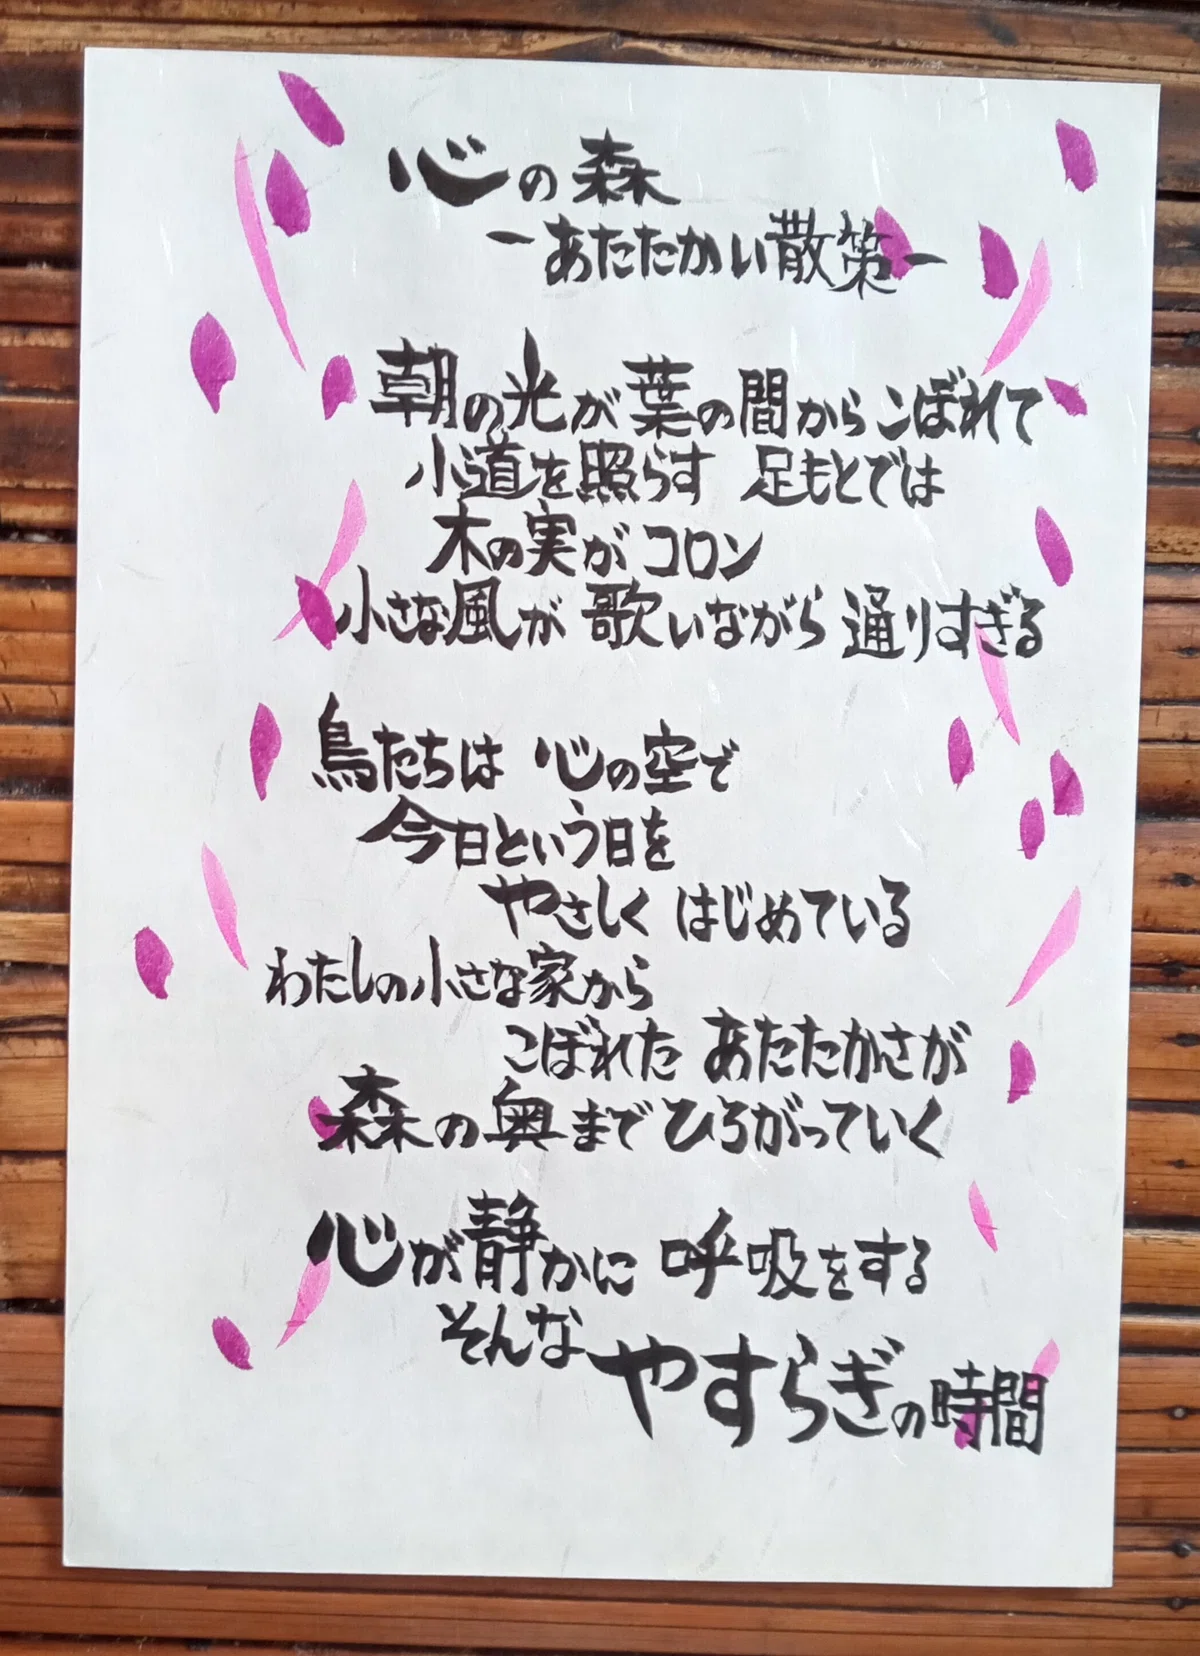 心の森
－あたたかい散策－
朝の光が葉の間からこぼれて
小道を照らす 足もとでは
木の実がコロン
小さな風が 歌いながら 通りすぎる
鳥たちは 心の空で
今日という日を
やさしく はじめている
わたしの小さな家から
こぼれた あたたかさが
森の奥まで ひろがっていく
心が静かに 呼吸をする
そんな
やすらぎの時間